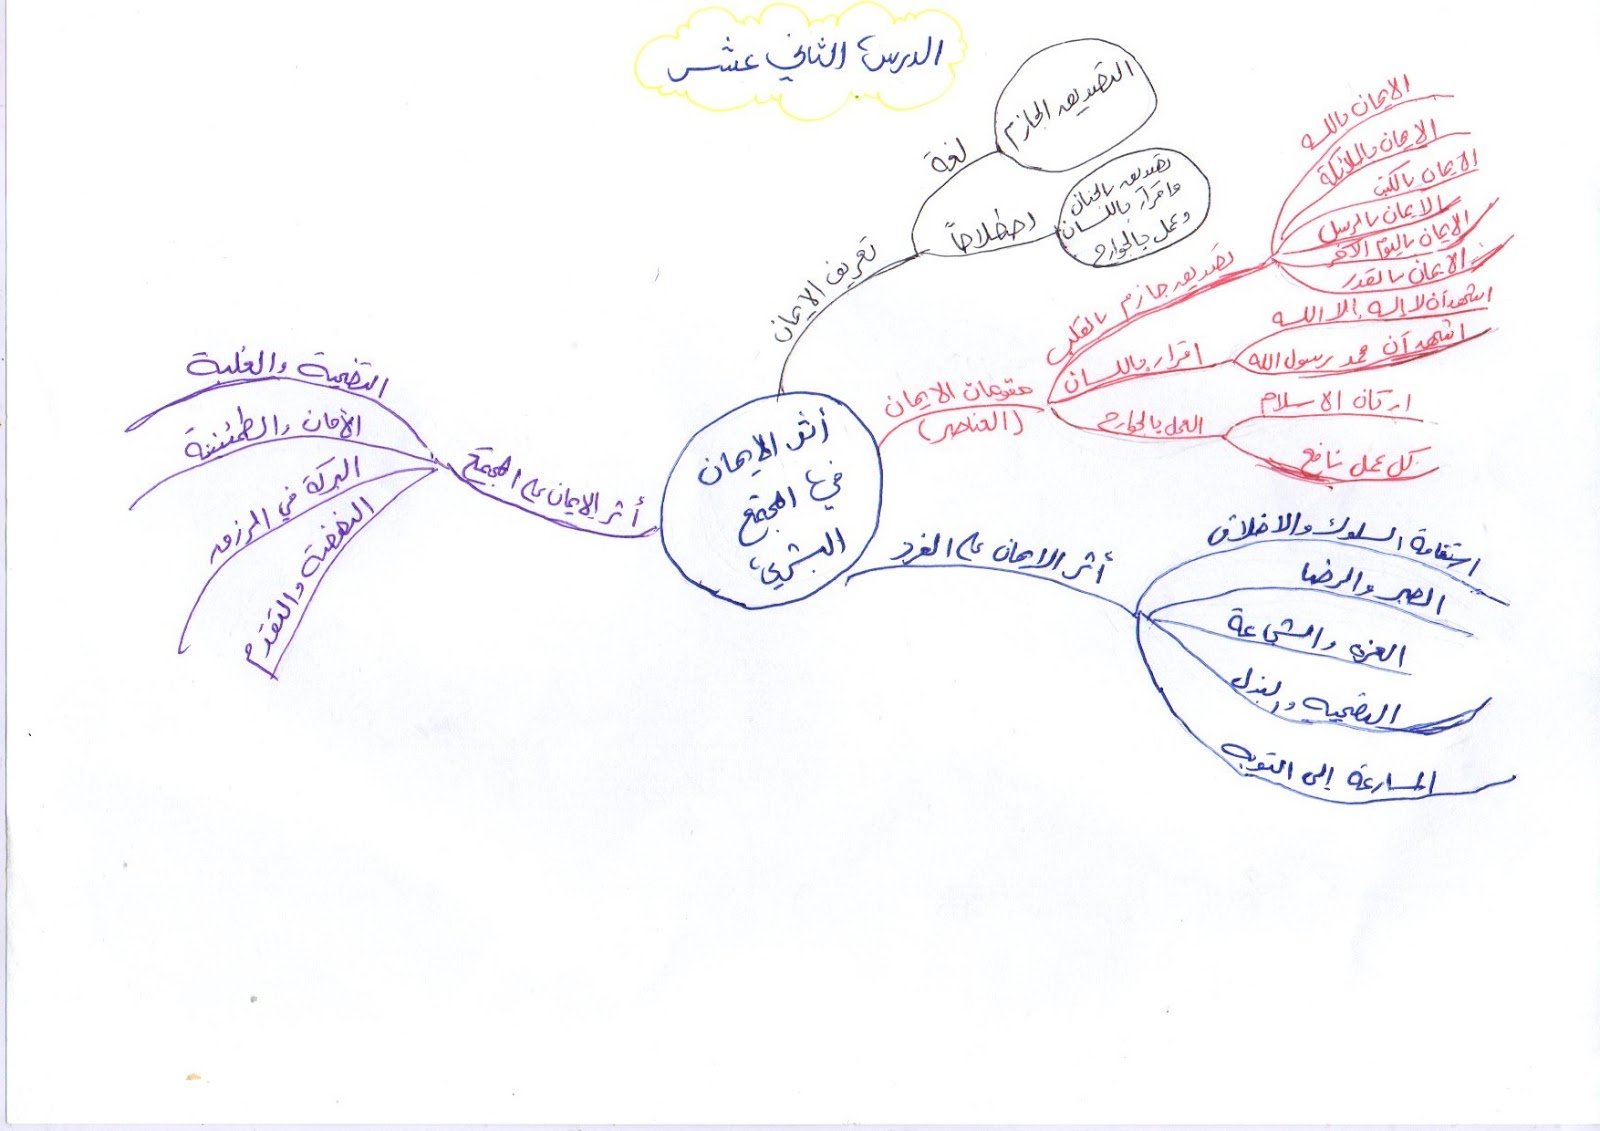 الدرس الثاني عشر
أثر الايمان
في المجتمع
البشري
تعريف الايمان
لغة
التصديق الجازم
اصطلاحاً
تصديق بالجنان
واقرار باللسان
وعمل بالجوارح
مقومات الايمان
(العناصر)
تصديق جازم بالقلب
الايمان بالله
الايمان بالملائكة
الايمان بالكتب
الايمان بالرسل
الايمان باليوم الآخر
الايمان بالقدر
اقرار باللسان
اشهد أن لا إله إلا الله
اشهد أن محمد رسول الله
العمل بالجوارح
اركان الاسلام
كل عمل نافع
أثر الايمان على الفرد
استقامة السلوك والاخلاق
الصبر والرضا
العزه والشجاعة
التضحيه والبذل
المسارعة إلى التوبه
أثر الايمان على المجتمع
التضحية والغلبة
الأمان والطمئنينة
البركة في الرزق
النهضة والتقدم